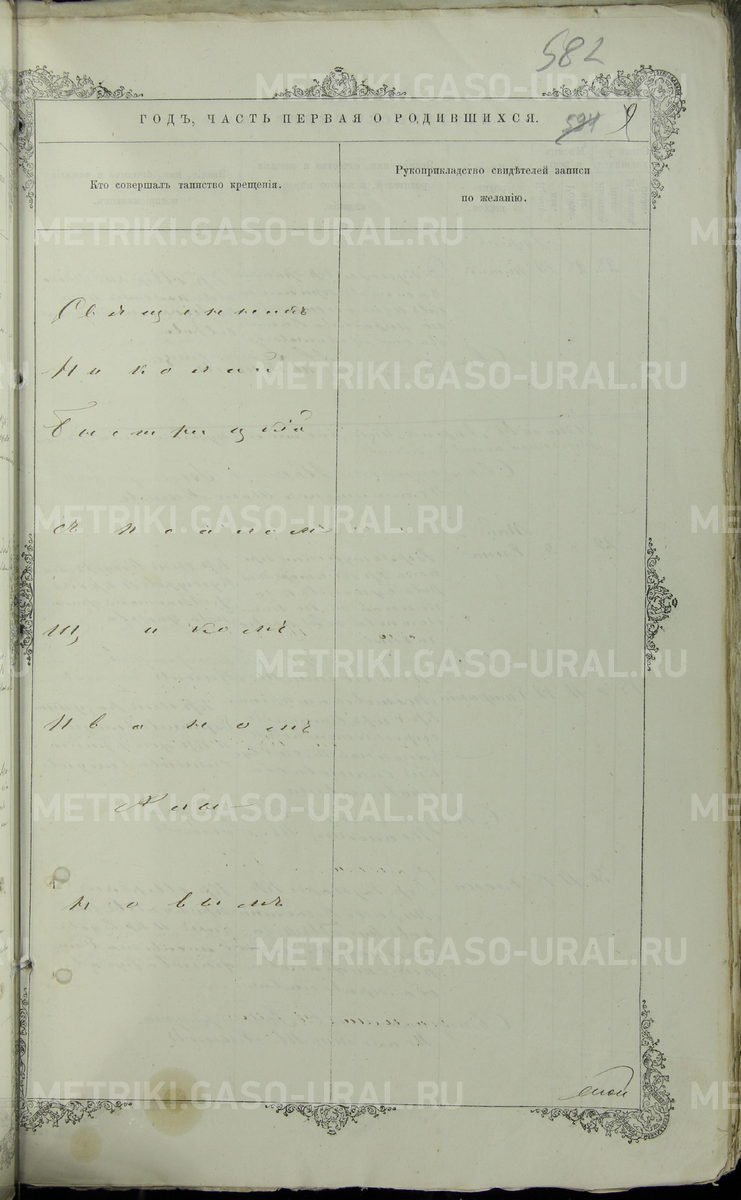 582
ГОДЪ, ЧАСТЬ ПЕРВАЯ О РОДИВШИХСЯ. 591 9
Кто совершалъ таинство крещенія.
Рукоприкладство свидѣтелей записи
по желанію.
Священникъ
Николай
Быстрицкій
съ псалом
щикомъ
Иваномъ
Алы-
новымъ
METRIKI.GASO-URAL.RU